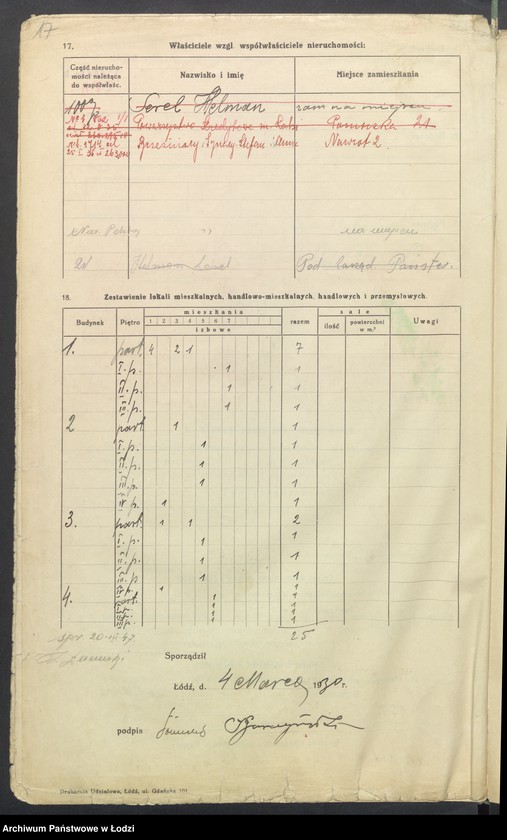 17
17. Właściciele wzgl. współwłaściciele nieruchomości:
Część nierucho-
mości należąca
do współwłaśc.
Nazwisko i imię
Miejsce zamieszkania
100% Serel Helman zam na miejscu
Towarzystwo Kredytowe m. Łodzi Pomorska 21
Nawrot 2
na miejscu
Helman Pod Zarząd Państw.
18. Zestawienie lokali mieszkalnych, handlowo-mieszkalnych, handlowych i przemysłowych.
Budynek Piętro mieszkania razem sale Uwagi
1 2 3 4 5 6 7
izbowe
ilość powierzchni
w m.²
1. part. 4 2 1 7
I. p. 1 1
II. p. 1 1
III. p. 1 1
2 part. 1 1
I. p. 1 1
II. p. 1 1
III. p. 1 1
IV p. 1 1
3. part. 1 1 2
I. p. 1 1
II. p. 1 1
III. p 1 1
IV p. 1 1
4. part. 1 1
I p. 1 1
II p. 1 1
III p. 1 1
25
Sporządził
Łódź, d. 4 Marca 1930 r.
podpis
Drukarnia Udziałowa, Łódź, ul. Gdańska 101.
Archiwum Państwowe w Łodzi